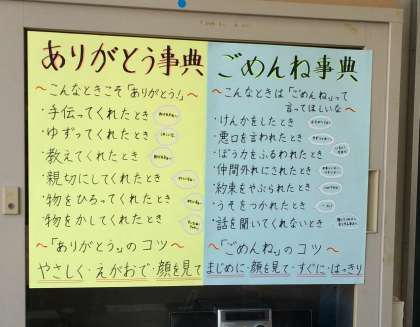 ありがとう事典
〜こんなときこそ「ありがとう！」〜
・手伝ってくれたとき
・ゆずってくれたとき
・教えてくれたとき
・親切にしてくれたとき
・物をひろってくれたとき
・物をかしてくれたとき
〜「ありがとう」のコツ〜
やさしく・えがおで・顔を見て
ごめんね事典
〜こんなときは「ごめんね」って
言ってほしいな〜
・けんかをしたとき
・悪口を言われたとき
・ぼう力をふるわれたとき
・仲間外れにされたとき
・約束をやぶられたとき
・うそをつかれたとき
・話を聞いてくれないとき
〜「ごめんね」のコツ〜
まじめに・顔を見て・すぐに・はっきり